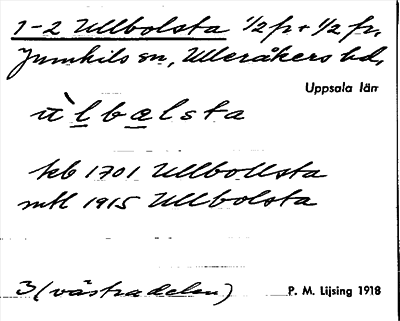 1-2 Ullbolsta ½ fr + ½ fr,
Jumkils sn, Ulleråkers hd,
Uppsala län
ùlbalsta
kb 1701 Ullbollsta
mtl 1915 Ullbolsta
3 (västra delen)
P. M. Lijsing 1918